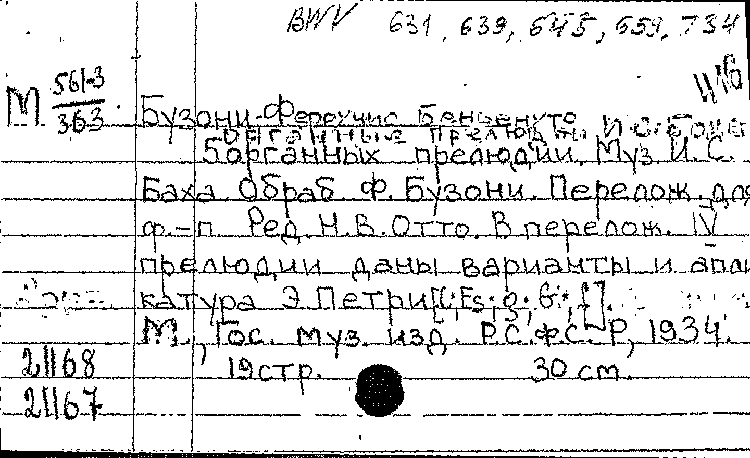 BWV 631, 639, 645, 659, 734
М 561-3
363
Бузони-Феруччио Бенвенуто
Органные прелюдии И.С. Баха
5 органных прелюдии. Муз. И.С.
Баха. Обраб. Ф. Бузони. Перелож. для
ф.-п. Ред. Н.В. Отто. В перелож. IV
прелюдии даны варианты и апли
катура Э. Петри [C, Es, g, G, f].
М., Гос. муз. изд. Р.С.Ф.С.Р, 1934.
19 стр. 30 cm.
21168
21167